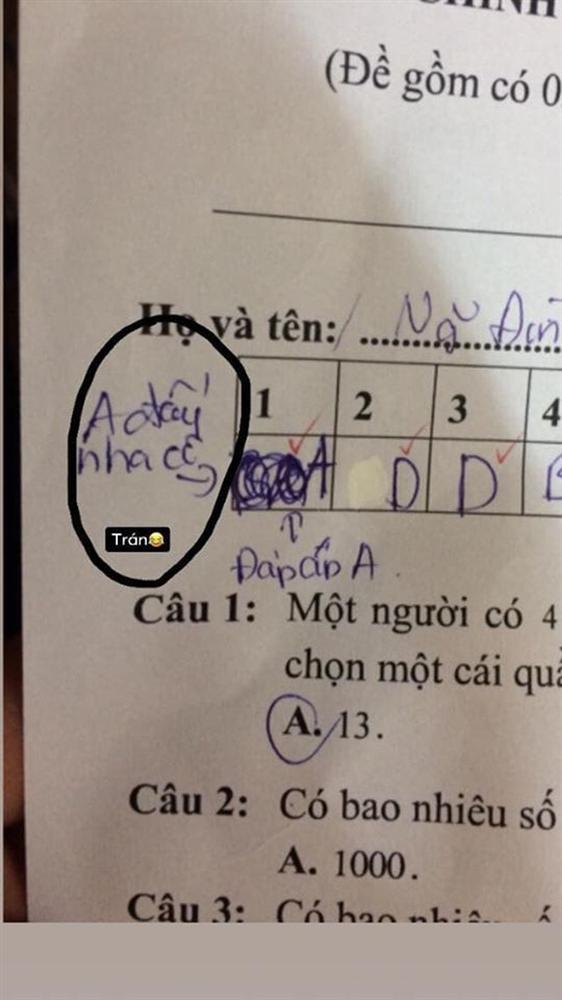 (Đề gồm có 0
Họ và tên: Ngô Đun
A đấy
nha cô
1 2 3 4
A D D
Đáp án A
Trán😂
Câu 1: Một người có 4
chọn một cái quầ
A. 13.
Câu 2: Có bao nhiêu số
A. 1000.
Câu 3: Có bao nhiêu số